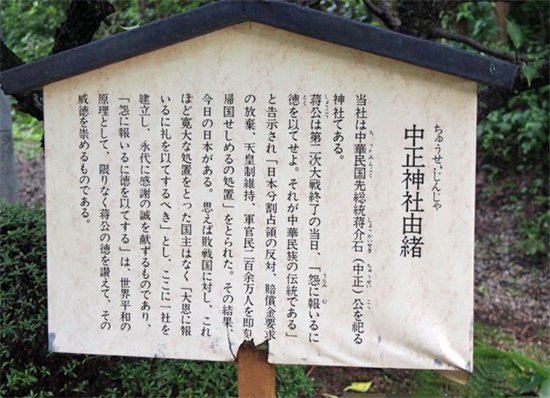 ちゅうせいじんじゃ
中正神社由緒
ちゅうかみんこく しょうかいせき ちゅうせい こう
当社は中華民国先総統蒋介石(中正)公を祀る
神社である。
しょうこう うらみ むく
蒋公は第二次大戦終了の当日、「怨に報いるに
とく
徳を以てせよ。それが中華民族の伝統である」
と告示され「日本分割占領の反対、賠償金要求
の放棄、天皇制維持、軍官民二百余万人を即刻
帰国せしめるの処置」をとられた。その結果、
今日の日本がある。思えば敗戦国に対し、これ
ほど寛大な処置をとった国主はなく「大恩に報
いるに礼を以てするべき」とし、ここに一社を
建立し、永代に感謝の誠を献ずるものであり、
「怨に報いるに徳を以てする」は、世界平和の
原理として、限りなく蒋公の徳を讃えて、その
威徳を崇めるものである。